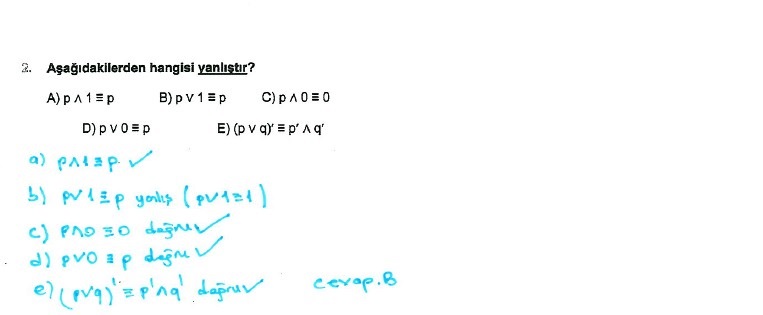 2. Aşağıdakilerden hangisi yanlıştır?
A) p ∧ 1 ≡ p B) p ∨ 1 ≡ p C) p ∧ 0 ≡ 0
D) p ∨ 0 ≡ p E) (p ∨ q)′ ≡ p′ ∧ q′
a) p∧1≡p ✓
b) p∨1≡p yanlış (p∨1≡1)
c) p∧0≡0 doğru ✓
d) p∨0≡p doğru ✓
e) (p∨q)'≡p'∧q' doğru ✓ cevap.B